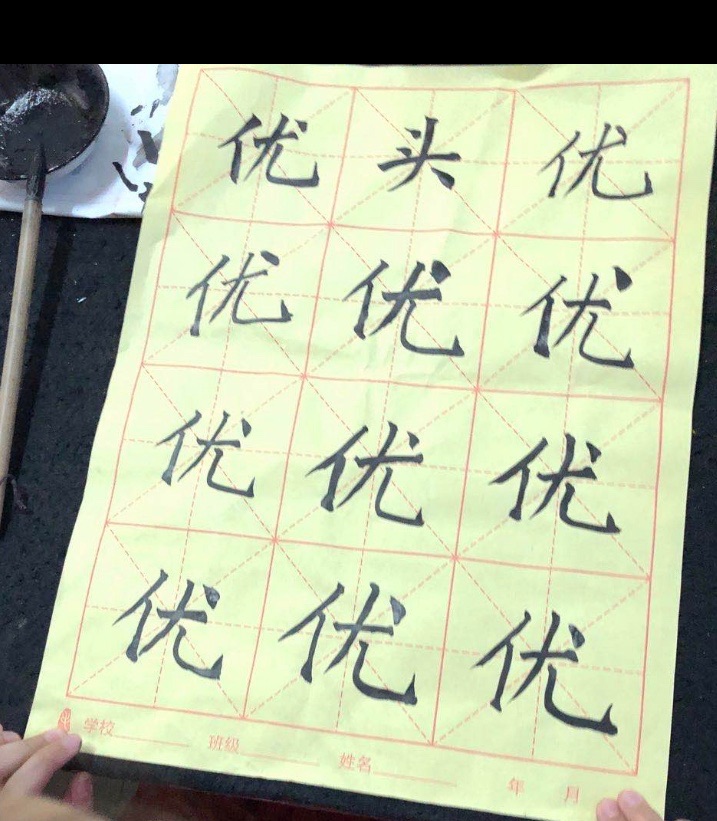 优 头 优
优 优 优
优 优 优
优 优 优
学校 班级 姓名 年 月